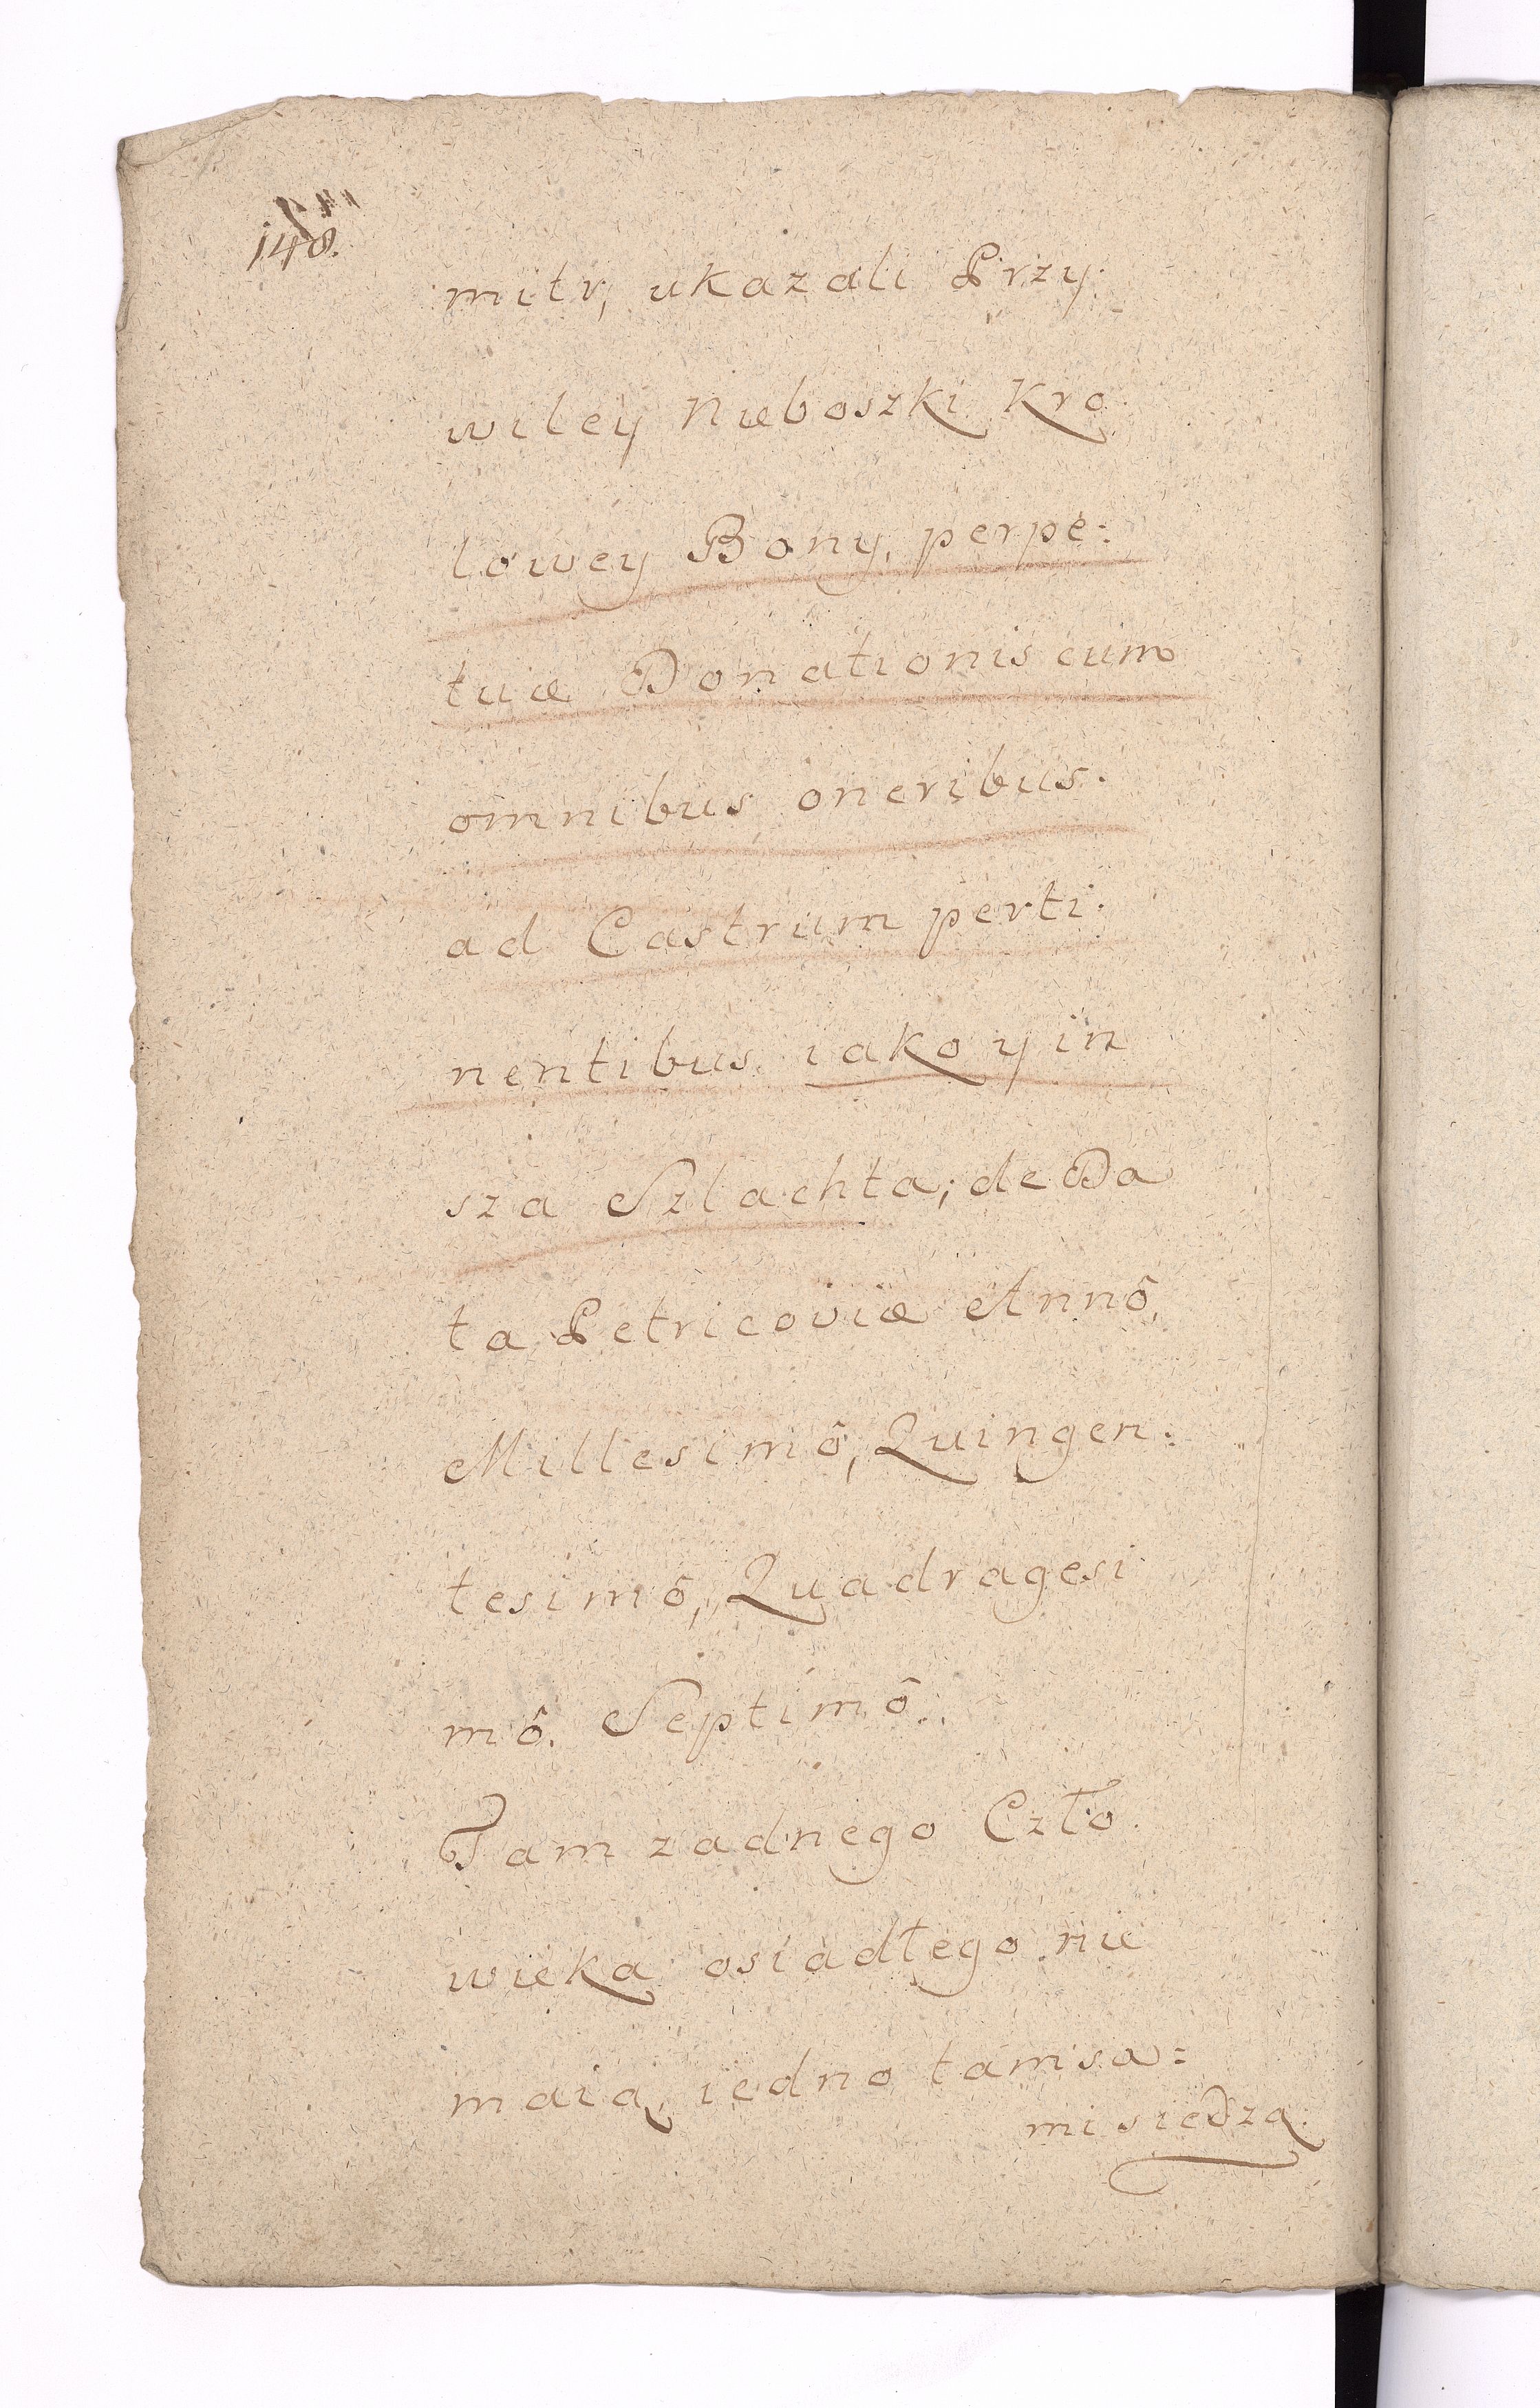 148.
mitr, ukazali Przy
wiley Nieboszki Kro
lowey Bony, perpe:
tuæ Donationis cum
omnibus oneribus.
ad Castrum perti.
nentibus. iako y in
sza Szlachta; de Da
ta Petricoviæ Annô,
Millesimô, Quingen:
tesimô, Quadragesi
mô. Septimô.
Tam zadnego Czło.
wieka osiadłego nie
maią, iedno tam sa=
mi siedzą.